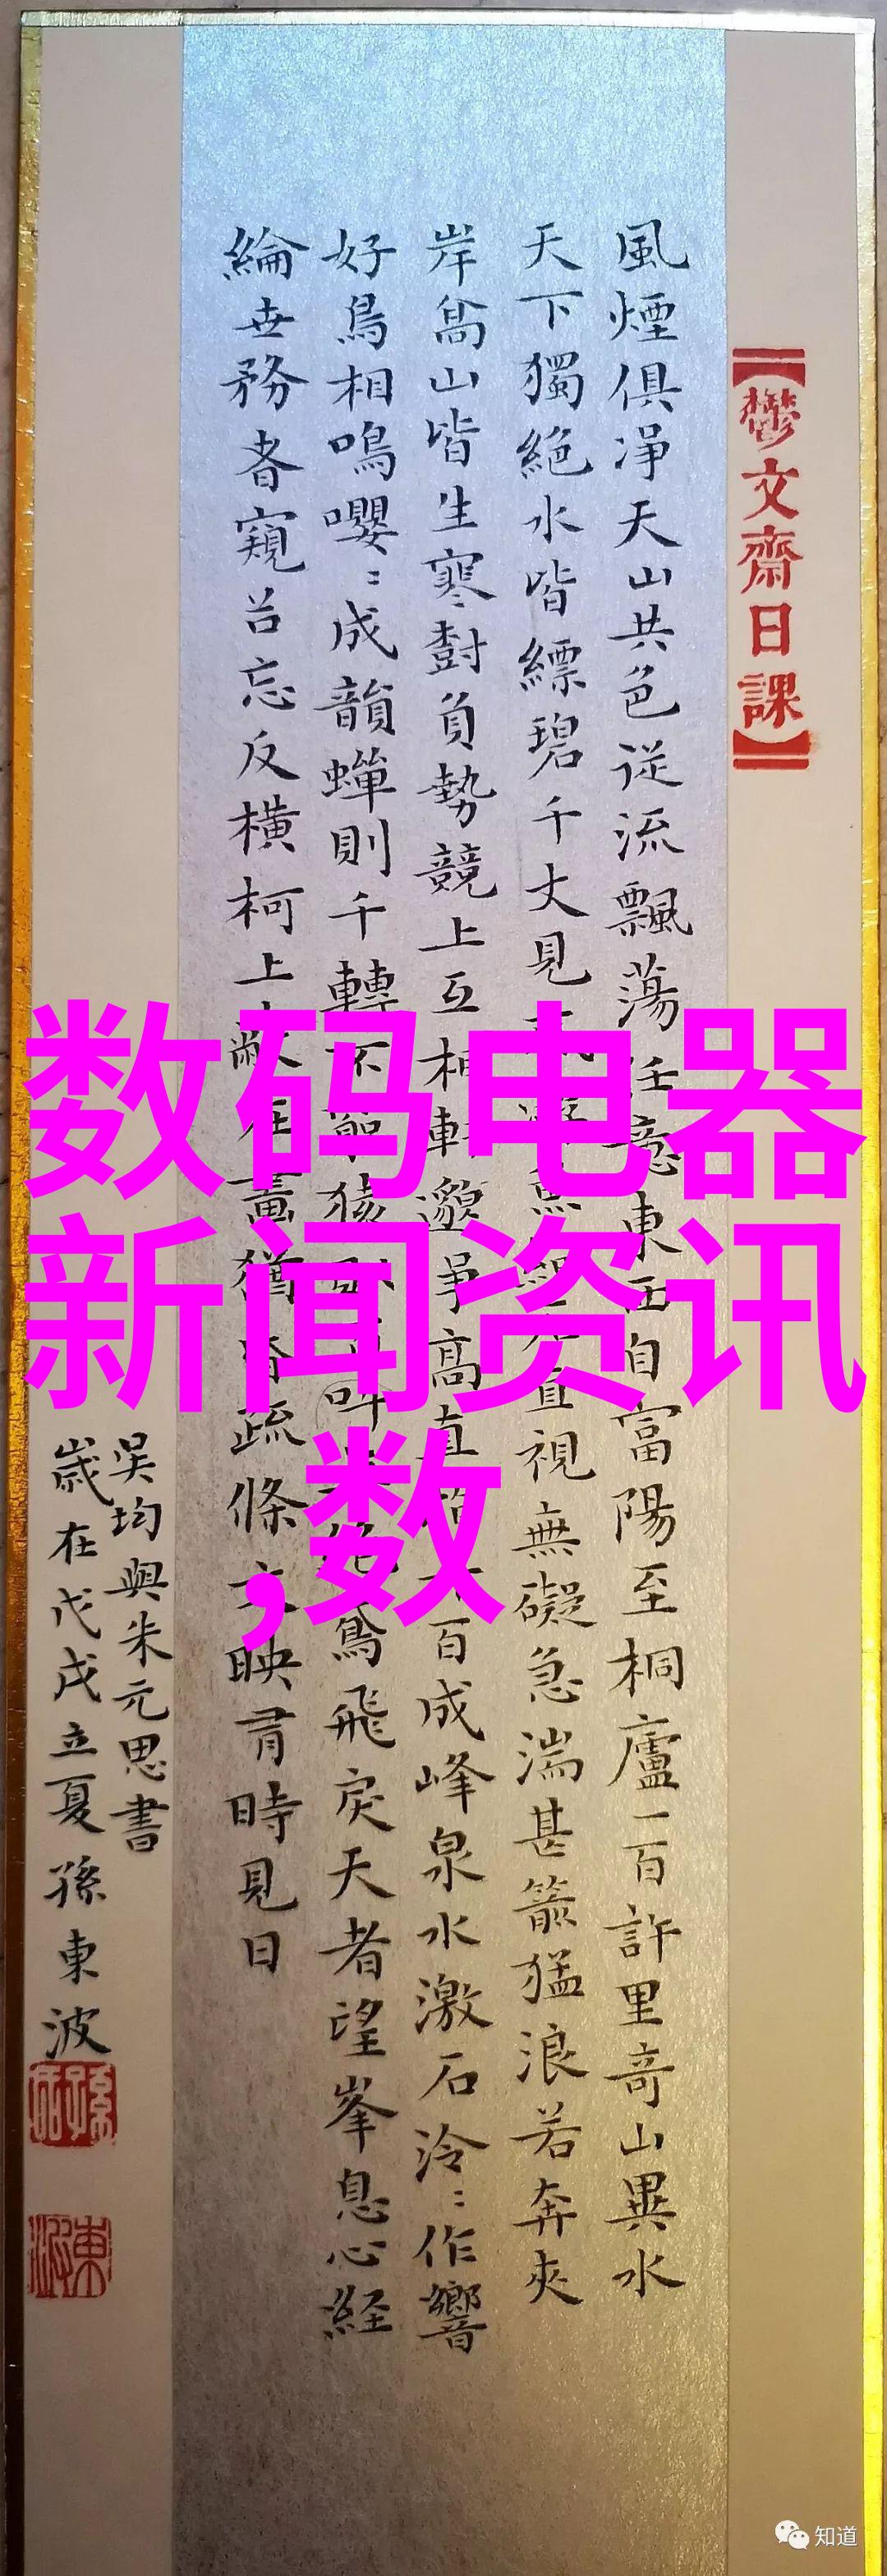 【鬱文齋日課】
風煙俱凈天山共色從流飄蕩任意東西自富陽至桐廬一百許里奇山異水
天下獨絕水皆縹碧千丈見直視無礙急湍甚箭猛浪若奔夾
岸高山皆生寒樹負勢競上互相軒邈爭高直百成峰泉水激石泠〻作響
好鳥相鳴嚶〻成韻蟬則千轉不窮猿叫絕鳶飛戾天者望峯息心経
綸世務者窺谷忘反橫柯上蔽在晝猶昏疏條交映有時見日
吳均與朱元思書
歲在戊戌立夏孫東波
数码电器
新闻资讯
,数
知道